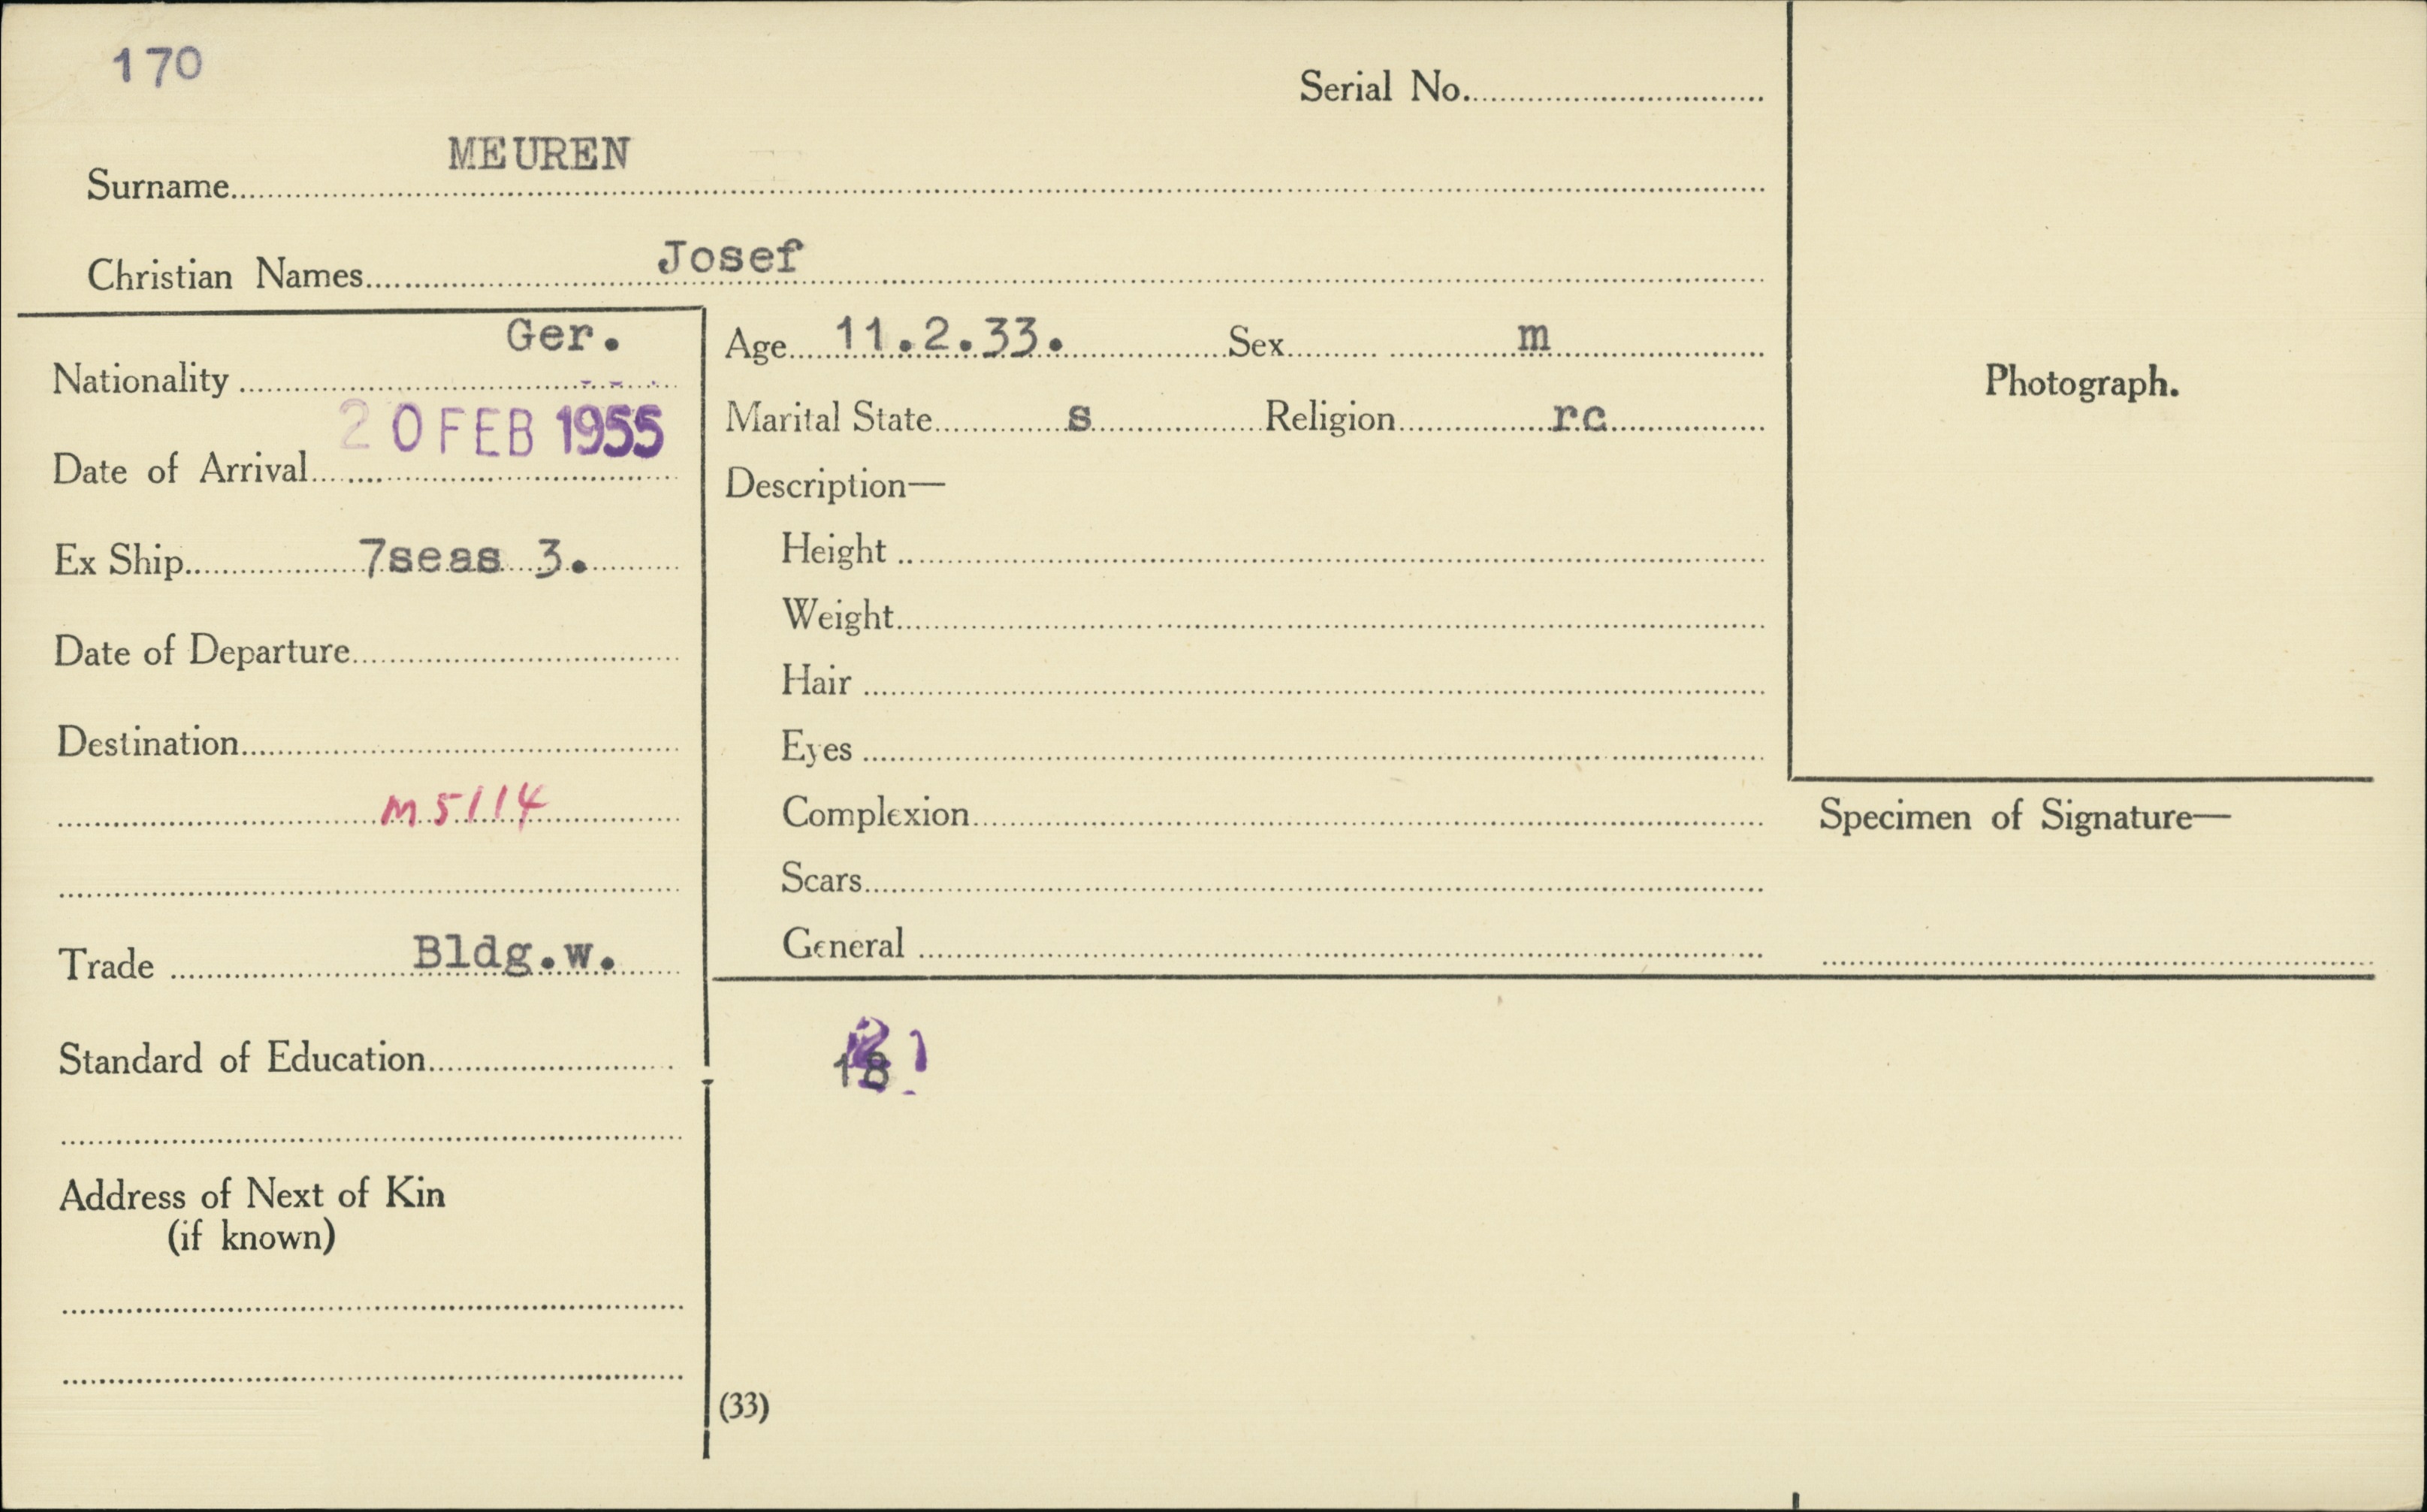 170
Serial No.
MEUREN
Surname
Josef
Christian Names
Ger.
Nationality
20 FEB 1955
Date of Arrival
Ex Ship 7seas 3.
Date of Departure
Destination
M5114
Trade Bldg.w.
Standard of Education
Address of Next of Kin
(if known)
Age 11.2.33. Sex m
Marital State s Religion rc
Description—
Height
Weight
Hair
Eyes
Complexion
Scars
General
18
(33)
Photograph.
Specimen of Signature—